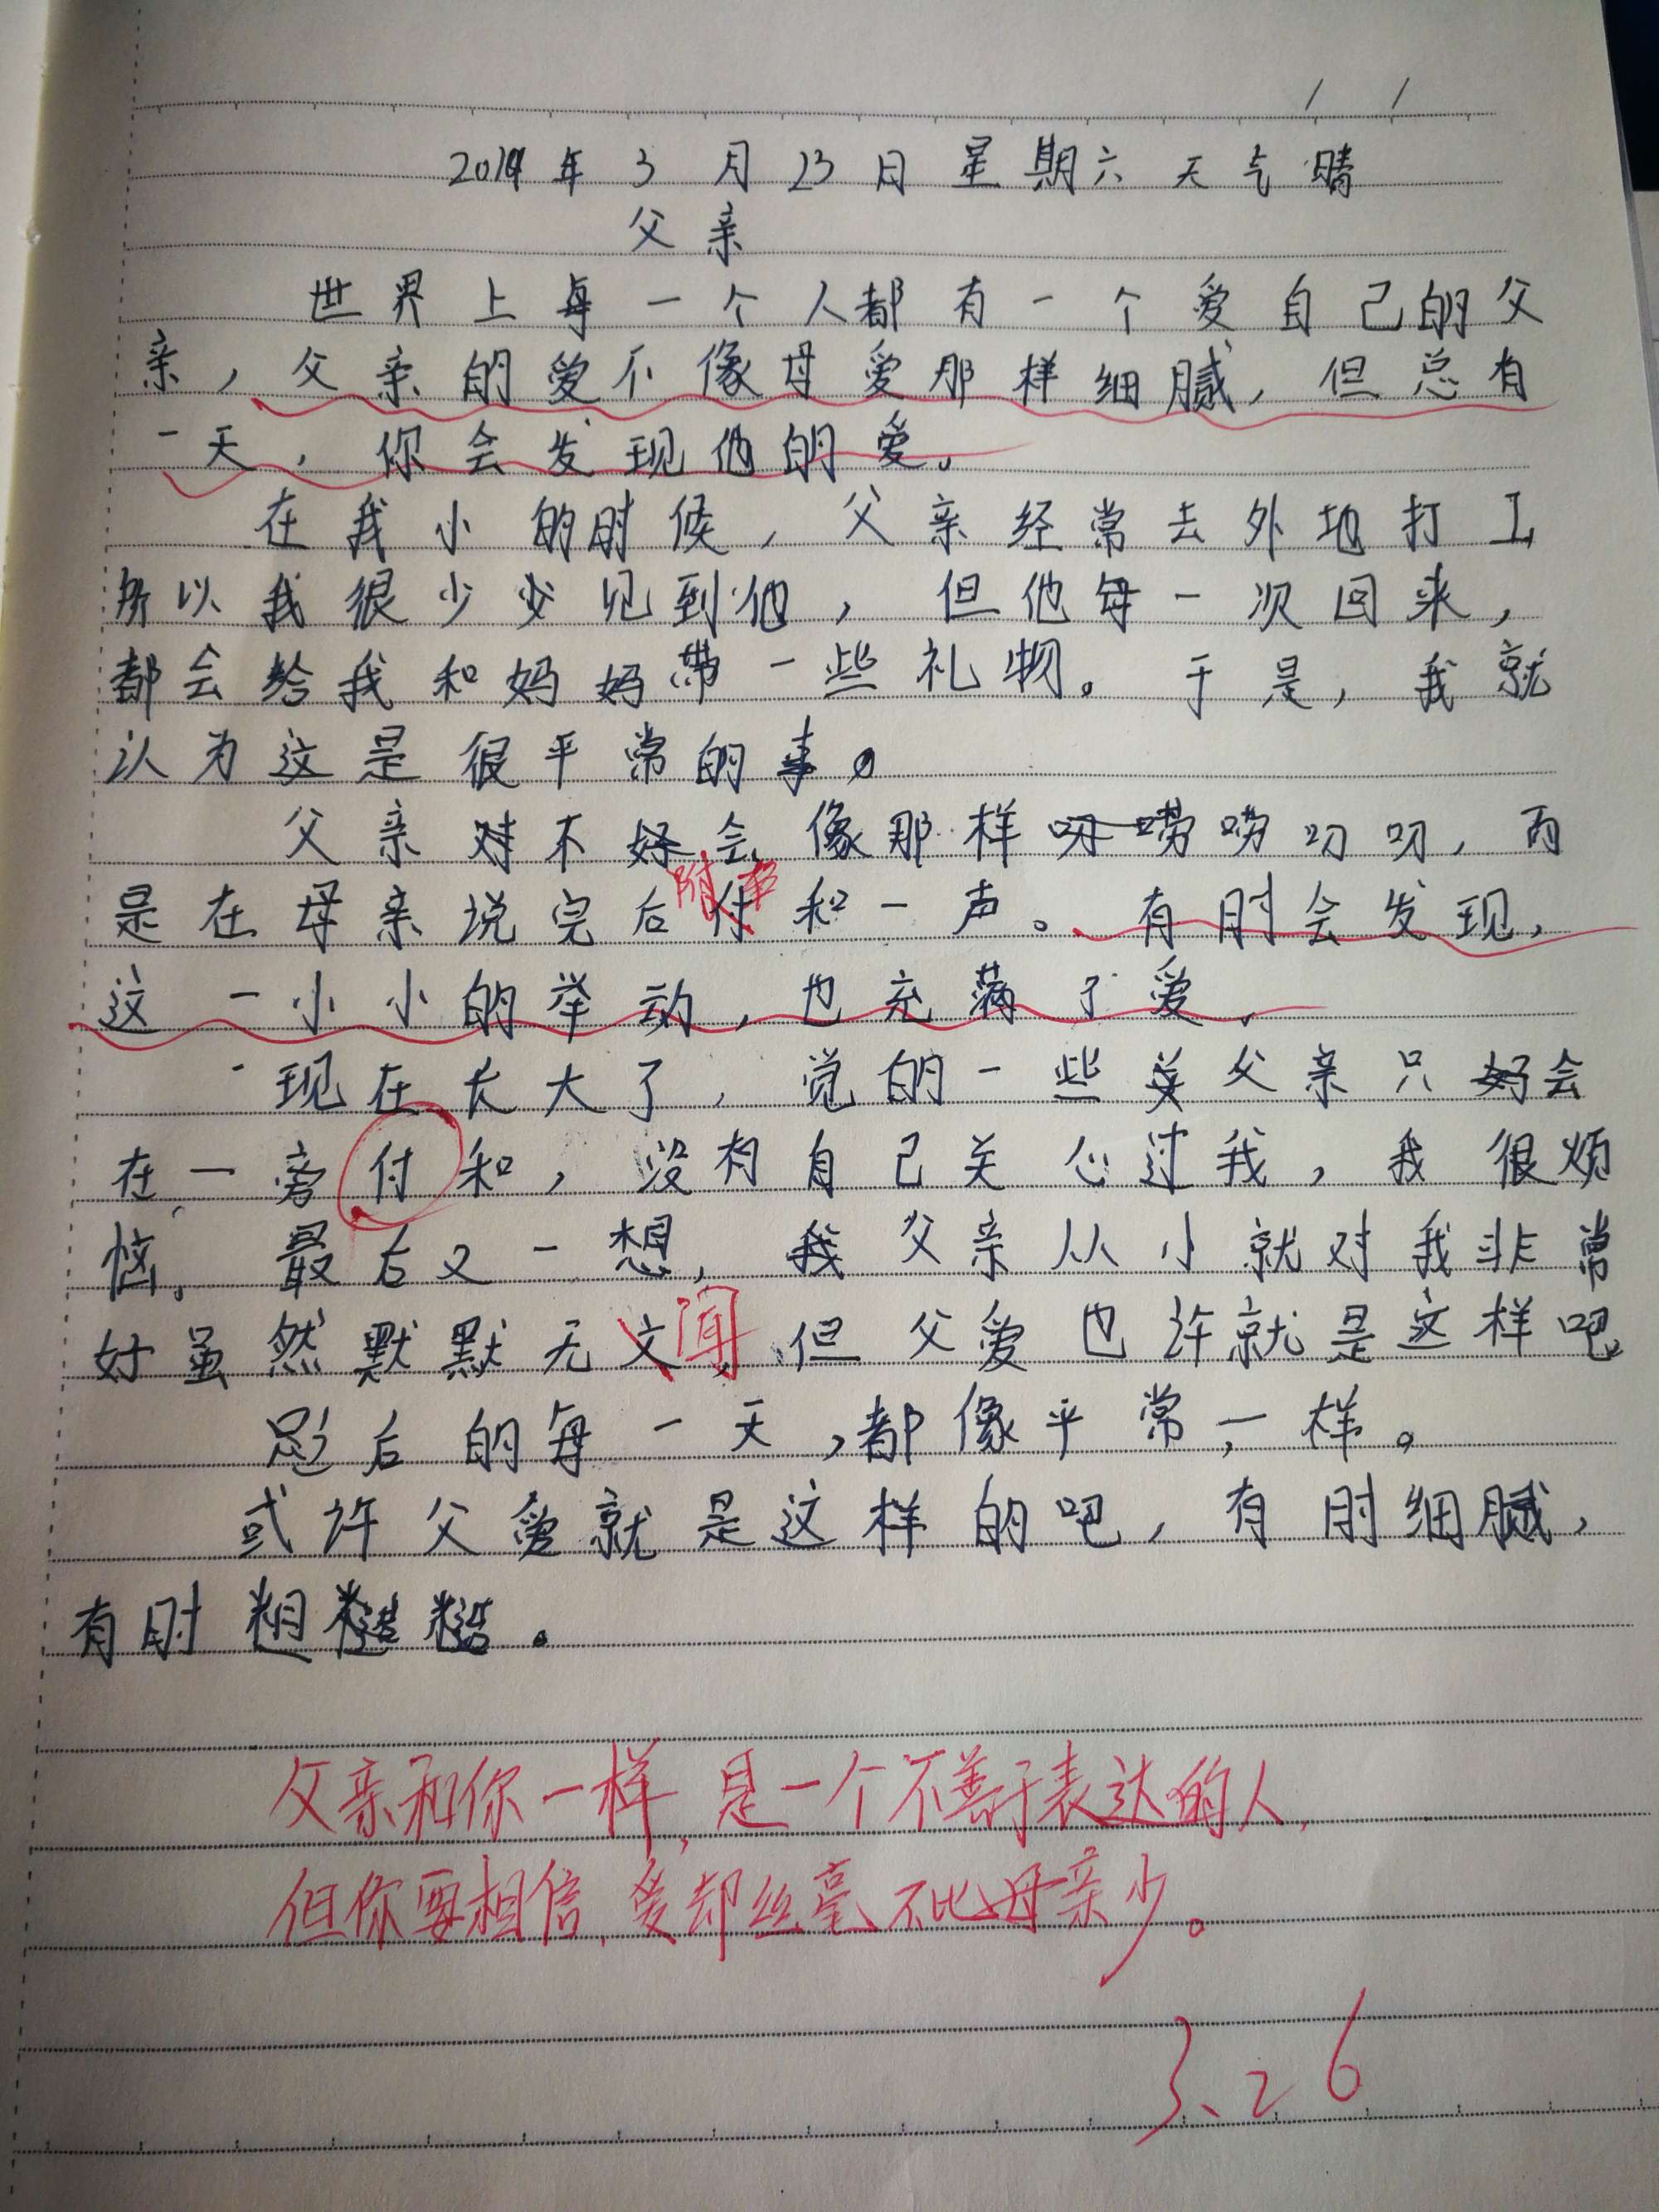 2019年3月23日星期六天气晴
父亲
世界上每一个人都有一个爱自己的父
亲，父亲的爱不像母爱那样细腻，但总有
一天，你会发现他的爱。
在我小的时候，父亲经常去外地打工
所以我很少少见到他，但他每一次回来，
都会给我和妈妈带一些礼物。于是，我就
认为这是很平常的事。
父亲对不好会像那样呀唠唠叨叨，而
附声
是在母亲说完后付和一声。有时会发现，
这一小小的举动，也充满了爱。
现在长大了，觉的一些父亲只好会
在一旁付和，没有自己关心过我，我很烦
恼。最后又一想，我父亲从小就对我非常
好虽然默默无文闻，但父爱也许就是这样吧
后的每一天，都像平常一样。
或许父爱就是这样的吧，有时细腻，
有时粗糙糙。
父亲和你一样，是一个不善于表达的人，
但你要相信，爱却丝毫不比母亲少。
3.26